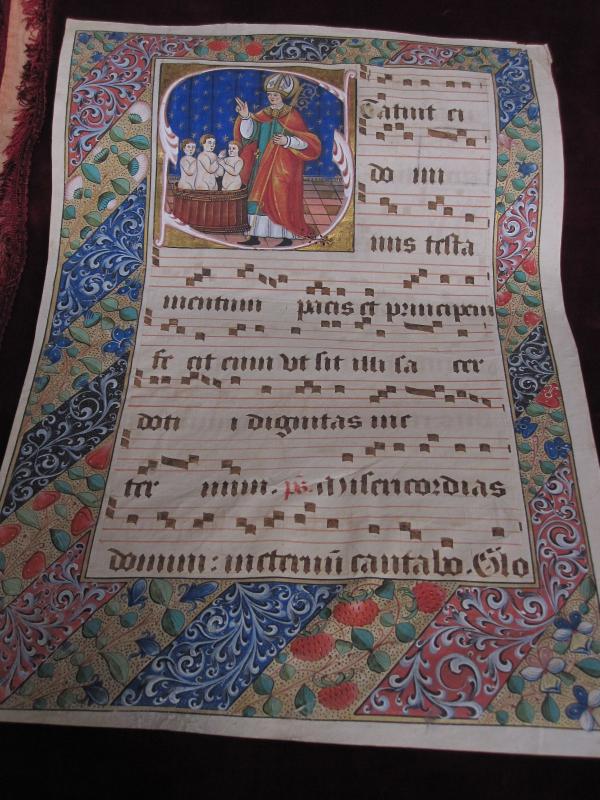 STatuit ei
do mi
nus testa
mentum pacis et principem
fe cit eum Vt sit illi sa cer
doti i dignitas in e
ter num. ps. Misericordias
domini: in eternū cantabo. Glo